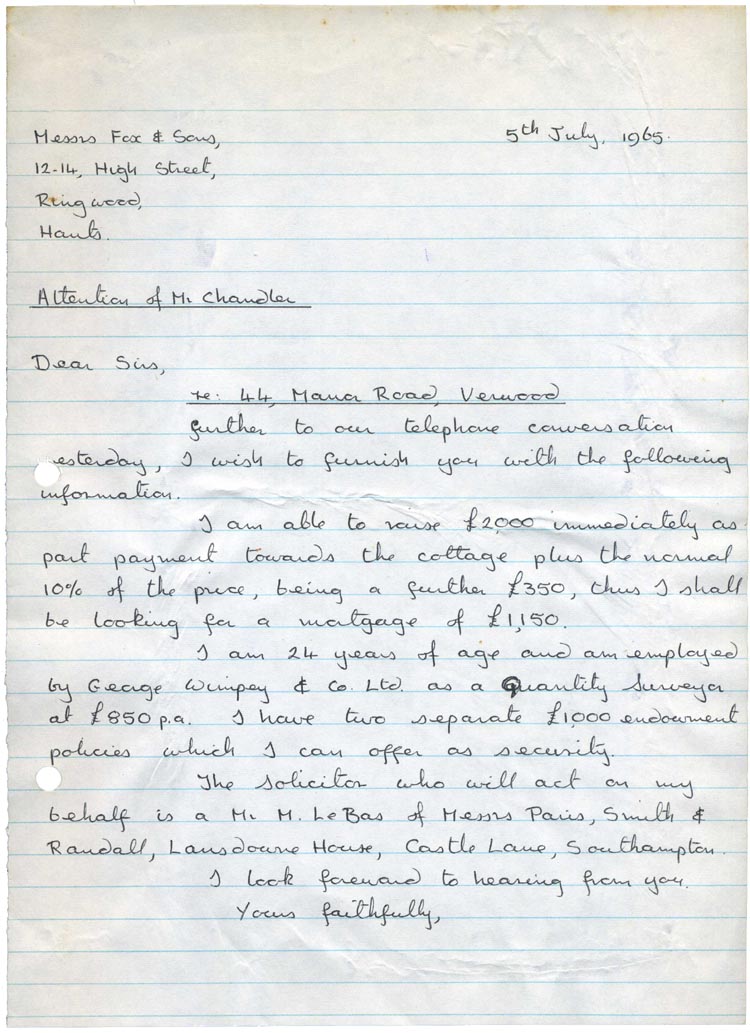 Messrs Fox & Sons,
5th July, 1965.
12-14, High Street,
Ringwood,
Hants.
Attention of Mr Chandler
Dear Sirs,
re: 44, Manor Road, Verwood
Further to our telephone conversation
esterday, I wish to furnish you with the following
information.
I am able to raise £2,000 immediately as
part payment towards the cottage plus the normal
10% of the price, being a further £350, thus I shall
be looking for a mortgage of £1,150.
I am 24 years of age and am employed
by George Wimpey & Co. Ltd. as a Quantity Surveyor
at £850 p.a. I have two separate £1,000 endowment
policies which I can offer as security.
The solicitor who will act on my
behalf is a Mr M. Le Bas of Messrs Paris, Smith &
Randall, Lansdowne House, Castle Lane, Southampton.
I look foreward to hearing from you.
Yours faithfully,